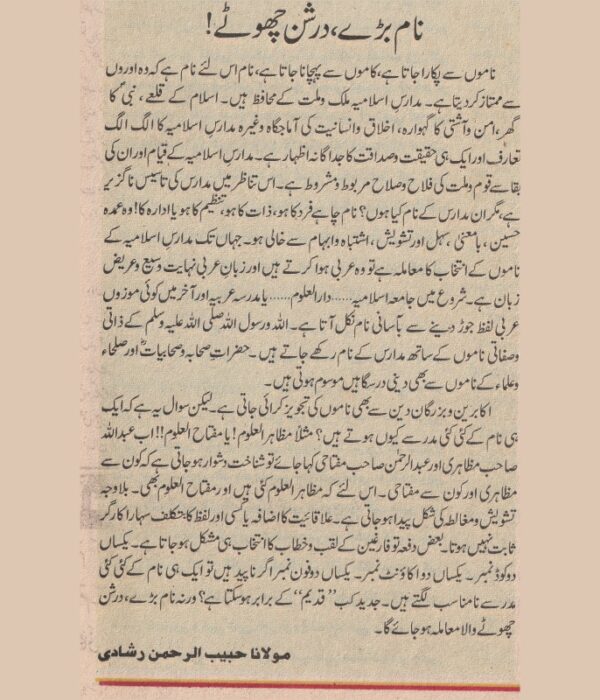 نام بڑے، درشن چھوٹے!
ناموں سے پکارا جاتا ہے، کاموں سے پہچانا جاتا ہے، نام اس لئے نام ہے کہ وہ اوروں
سے ممتاز کردیتا ہے۔ مدارس اسلامیہ ملک وملت کے محافظ ہیں۔ اسلام کے قلعے، نبی ؐ کا
گھر، امن وآشتی کا گہوارہ، اخلاق وانسانیت کی آماجگاہ وغیرہ مدارسِ اسلامیہ کا الگ الگ
تعارف اور ایک ہی حقیقت وصداقت کا جداگانہ اظہار ہے۔ مدارسِ اسلامیہ کے قیام اور ان کی
بقا سے قوم وملت کی فلاح وصلاح مربوط ومشروط ہے۔ اس تناظر میں مدارس کی تاسیس ناگزیر
ہے، مگر ان مدارس کے نام کیا ہوں؟ نام چاہے فرد کا ہو، ذات کا ہو، تنظیم کا ہو یا ادارہ کا! وہ عمدہ
حسین، بامعنیٰ، سہل اور تشویش، اشتباہ وابہام سے خالی ہو۔ جہاں تک مدارسِ اسلامیہ کے
ناموں کے انتخاب کا معاملہ ہے تو وہ عربی ہوا کرتے ہیں اور زبانِ عربی نہایت وسیع وعریض
زبان ہے۔ شروع میں جامعہ اسلامیہ......دارالعلوم......یا مدرسہ عربیہ اور آخر میں کوئی موزوں
عربی لفظ جوڑ دینے سے بآسانی نام نکل آتا ہے۔ اللہ ورسول اللہ صلی اللہ علیہ وسلم کے ذاتی
وصفاتی ناموں کے ساتھ مدارس کے نام رکھے جاتے ہیں۔ حضراتِ صحابہ وصحابیاتؓ اور صلحاء
وعلماء کے ناموں سے بھی دینی درسگاہیں موسوم ہوتی ہیں۔
اکابرین وبزرگان دین سے بھی ناموں کی تجویز کرائی جاتی ہے۔ لیکن سوال یہ ہے کہ ایک
ہی نام کے کئی کئی مدرسے کیوں ہوتے ہیں؟ مثلاً مظاہر العلوم! یا مفتاح العلوم!! اب عبداللہ
صاحب مظاہری اور عبدالرحمٰن صاحب مفتاحی کہا جائے تو شناخت دشوار ہوجاتی ہے کہ کون سے
مظاہری اور کون سے مفتاحی۔ اس لئے کہ مظاہر العلوم کئی ہیں اور مفتاح العلوم بھی۔ بلاوجہ
تشویش ومغالطہ کی شکل پیدا ہوجاتی ہے۔ علاقائیت کا اضافہ یا کسی اور لفظ کا بتکلف سہارا کارگر
ثابت نہیں ہوتا۔ بعض دفعہ تو فارغین کے لقب وخطاب کا انتخاب ہی مشکل ہوجاتا ہے۔ یکساں
دو کوڈ نمبر۔ یکساں دو اکاؤنٹ نمبر۔ یکساں دو فون نمبر اگر ناپید ہیں تو ایک ہی نام کے کئی کئی
مدرسے نامناسب لگتے ہیں۔ جدید کب ’’قدیم‘‘ کے برابر ہوسکتا ہے؟ ورنہ نام بڑے، درشن
چھوٹے والا معاملہ ہوجائے گا۔
مولانا حبیب الرحمن رشادی